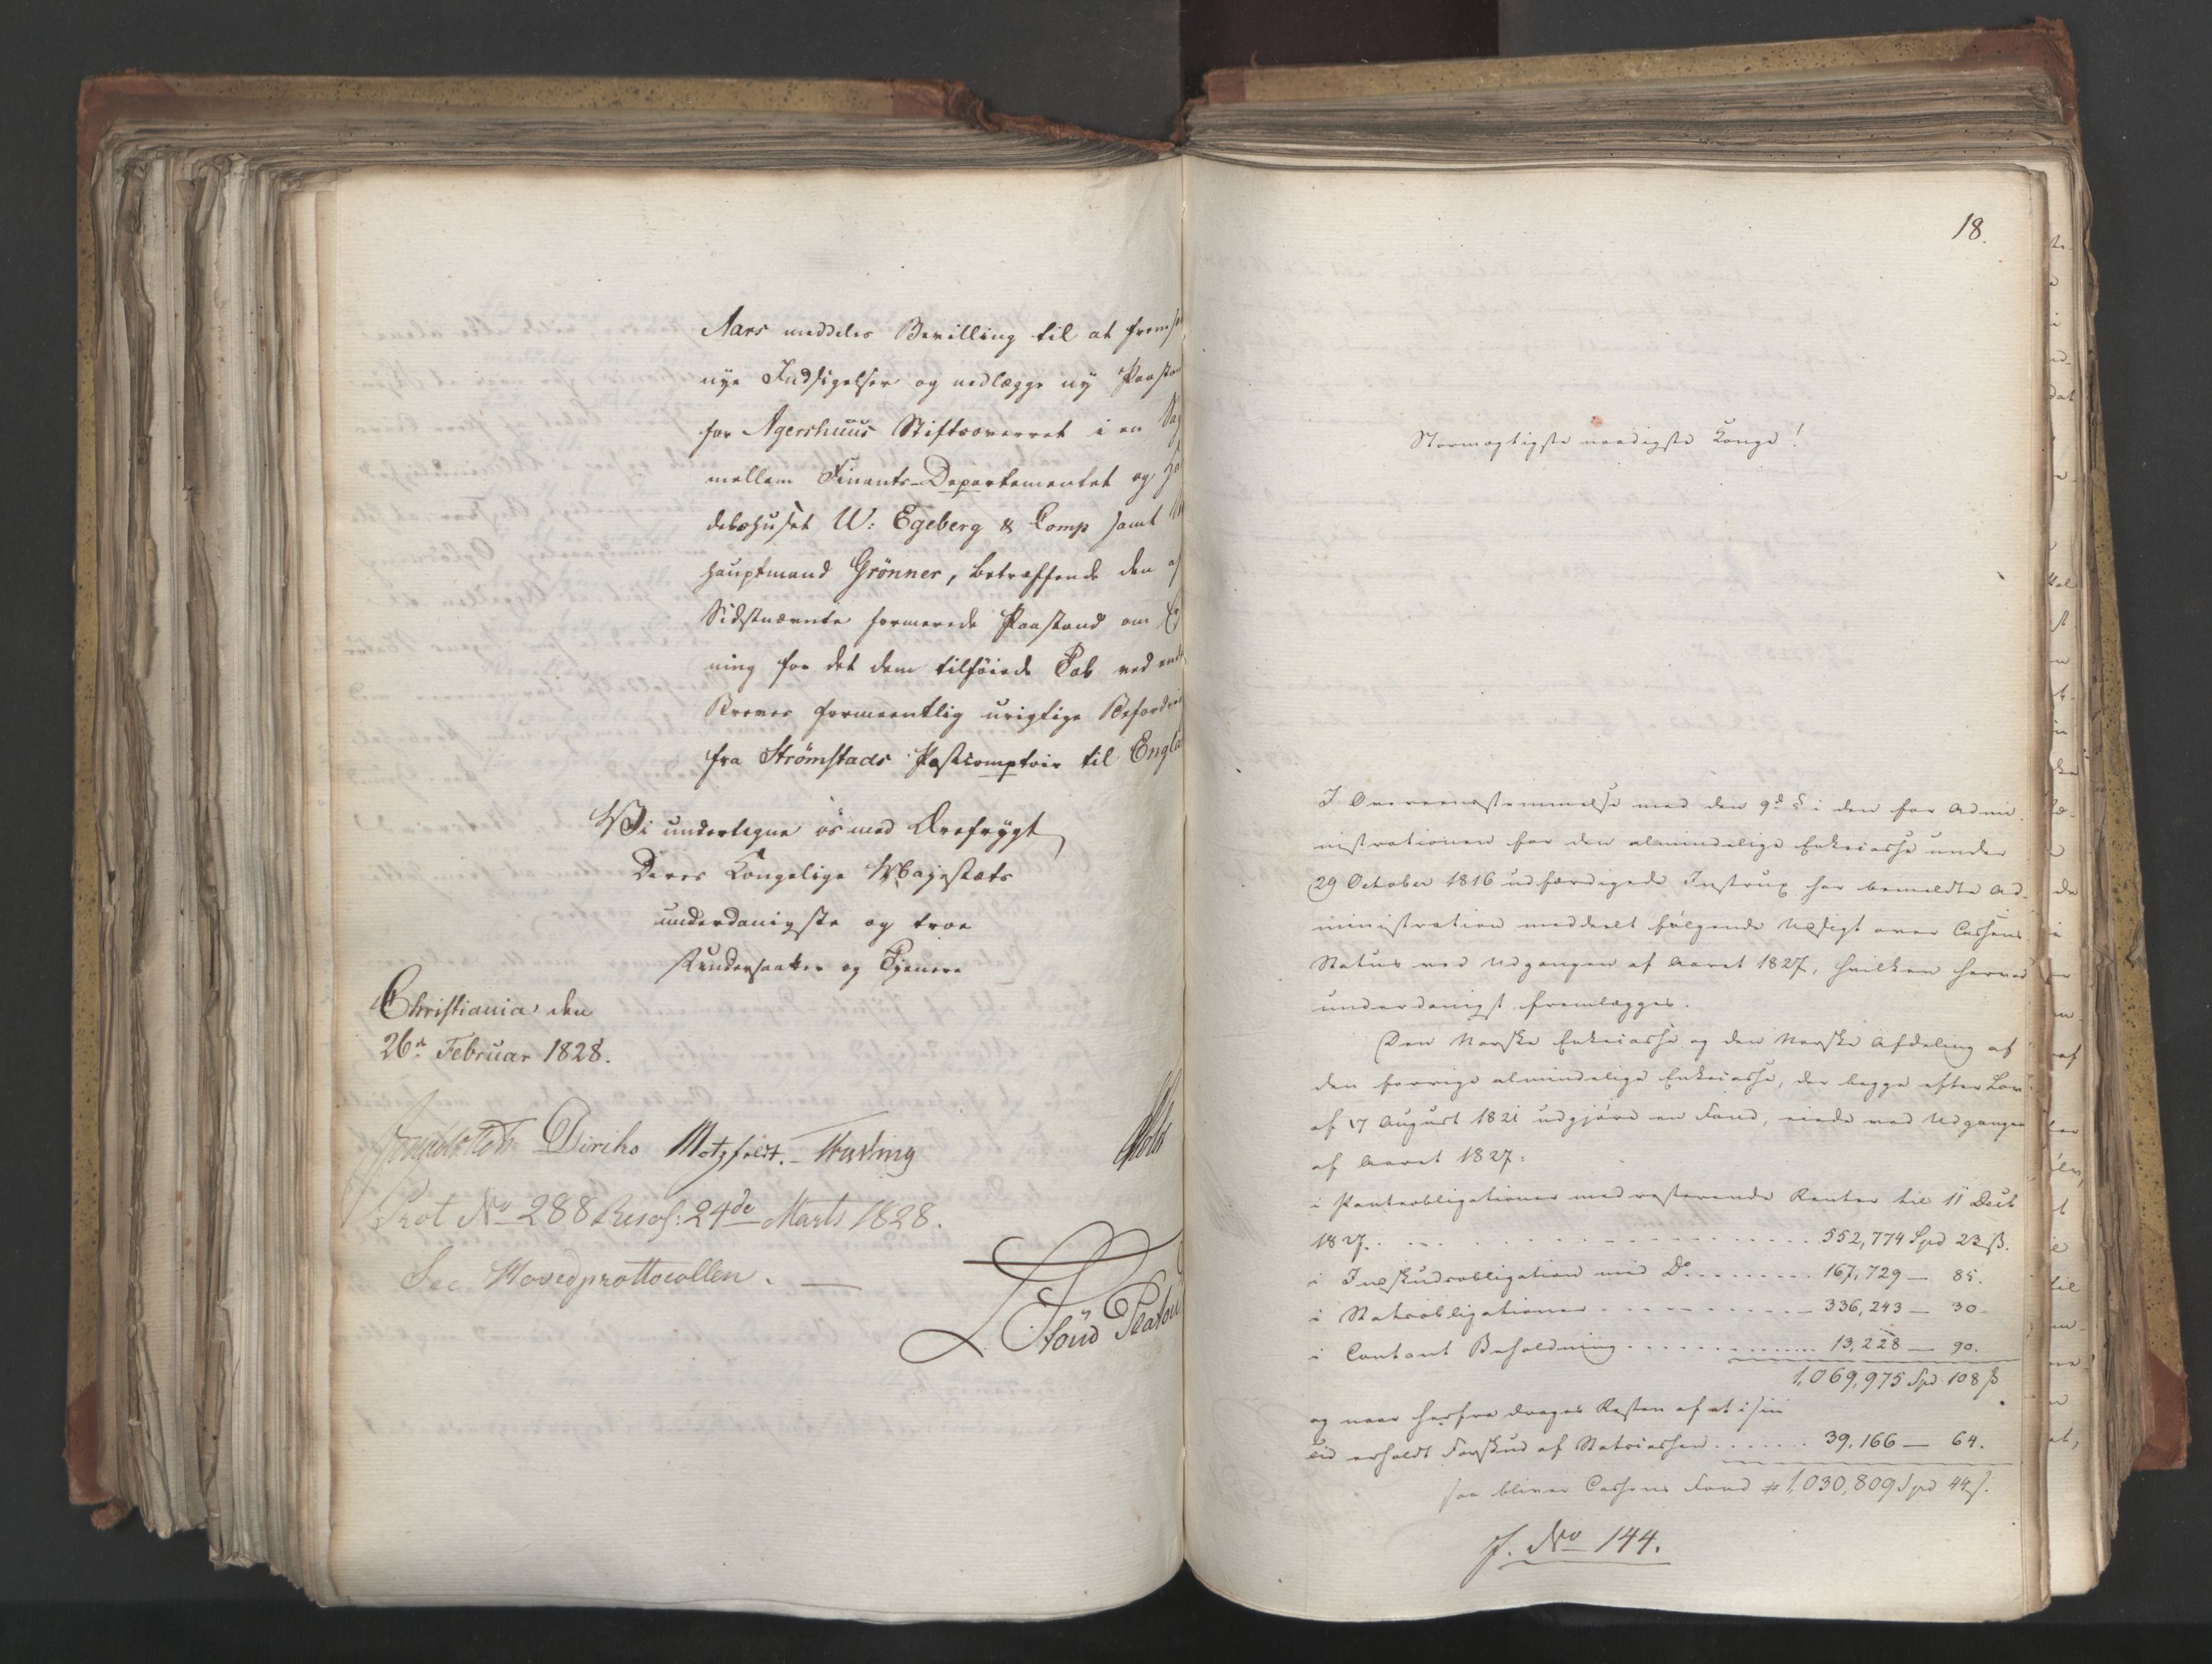 Aars meddeles Bevilling til at frems
nye Indsigelser og nedlægge ny Paasta
for Agershuus Stiftsoverret i en Sag
mellem Finants-Departementet og Ha
delshuset W: Egeberg & Comp samt
hauptmand Grönner, betræffende den af
Sidstnævnte formerede Paastand om Er
ning for det dem tilføiede Tab ved
Breves formeentlig urigtige Befordri
fra Strömstads Postcomptoir til Engla
Vi undertegne os med Ærefrygt
Deres Kongelige Majestæts
underdanigste og troe
Undersaatter og Tjenere
Christiania den
26de Februar 1828.
Diriks Motzfeldt. Holst
Prot No 288 Resol: 24de Marts 1828.
See Hovedprottocollen.
18.
Stormægtigste naadigste Konge!
I Overeensstemmelse med den 9de § i den for Admi
nistrationen for den almindelige Enkecasse under
29 October 1816 udfærdigede Instrux har bemeldte Ad-
ministration meddeelt følgende Udsigt over Cassens
Status ved Udgangen af Aaret 1827, hvilken herved
underdanigst fremlægges.
Den Norske Enkecasse og den Norske Afdeling af
den forrige almindelige Enkecasse, der begge efter Lov
af 17 August 1821 udgjøre en Fond, eiede ved Udgangen
af Aaret 1827:
i Panteobligationer med resterende Renter til 11 Decb
1827. 552,774 Spd 23 ß.
i Indskudsobligation med Do. 167,729 — 85.
i Statsobligationer 336,243 — 30
i Contant Beholdning 13,228 — 90.
1,069,975 Spd 108 ß
og naar herfra drages Resten af et i sin
Tid erholdt Forskud af Statscassen 39,166 — 64.
saa bliver Cassens Fond 1,030,809 Spd 44 ß.
J. No 144.